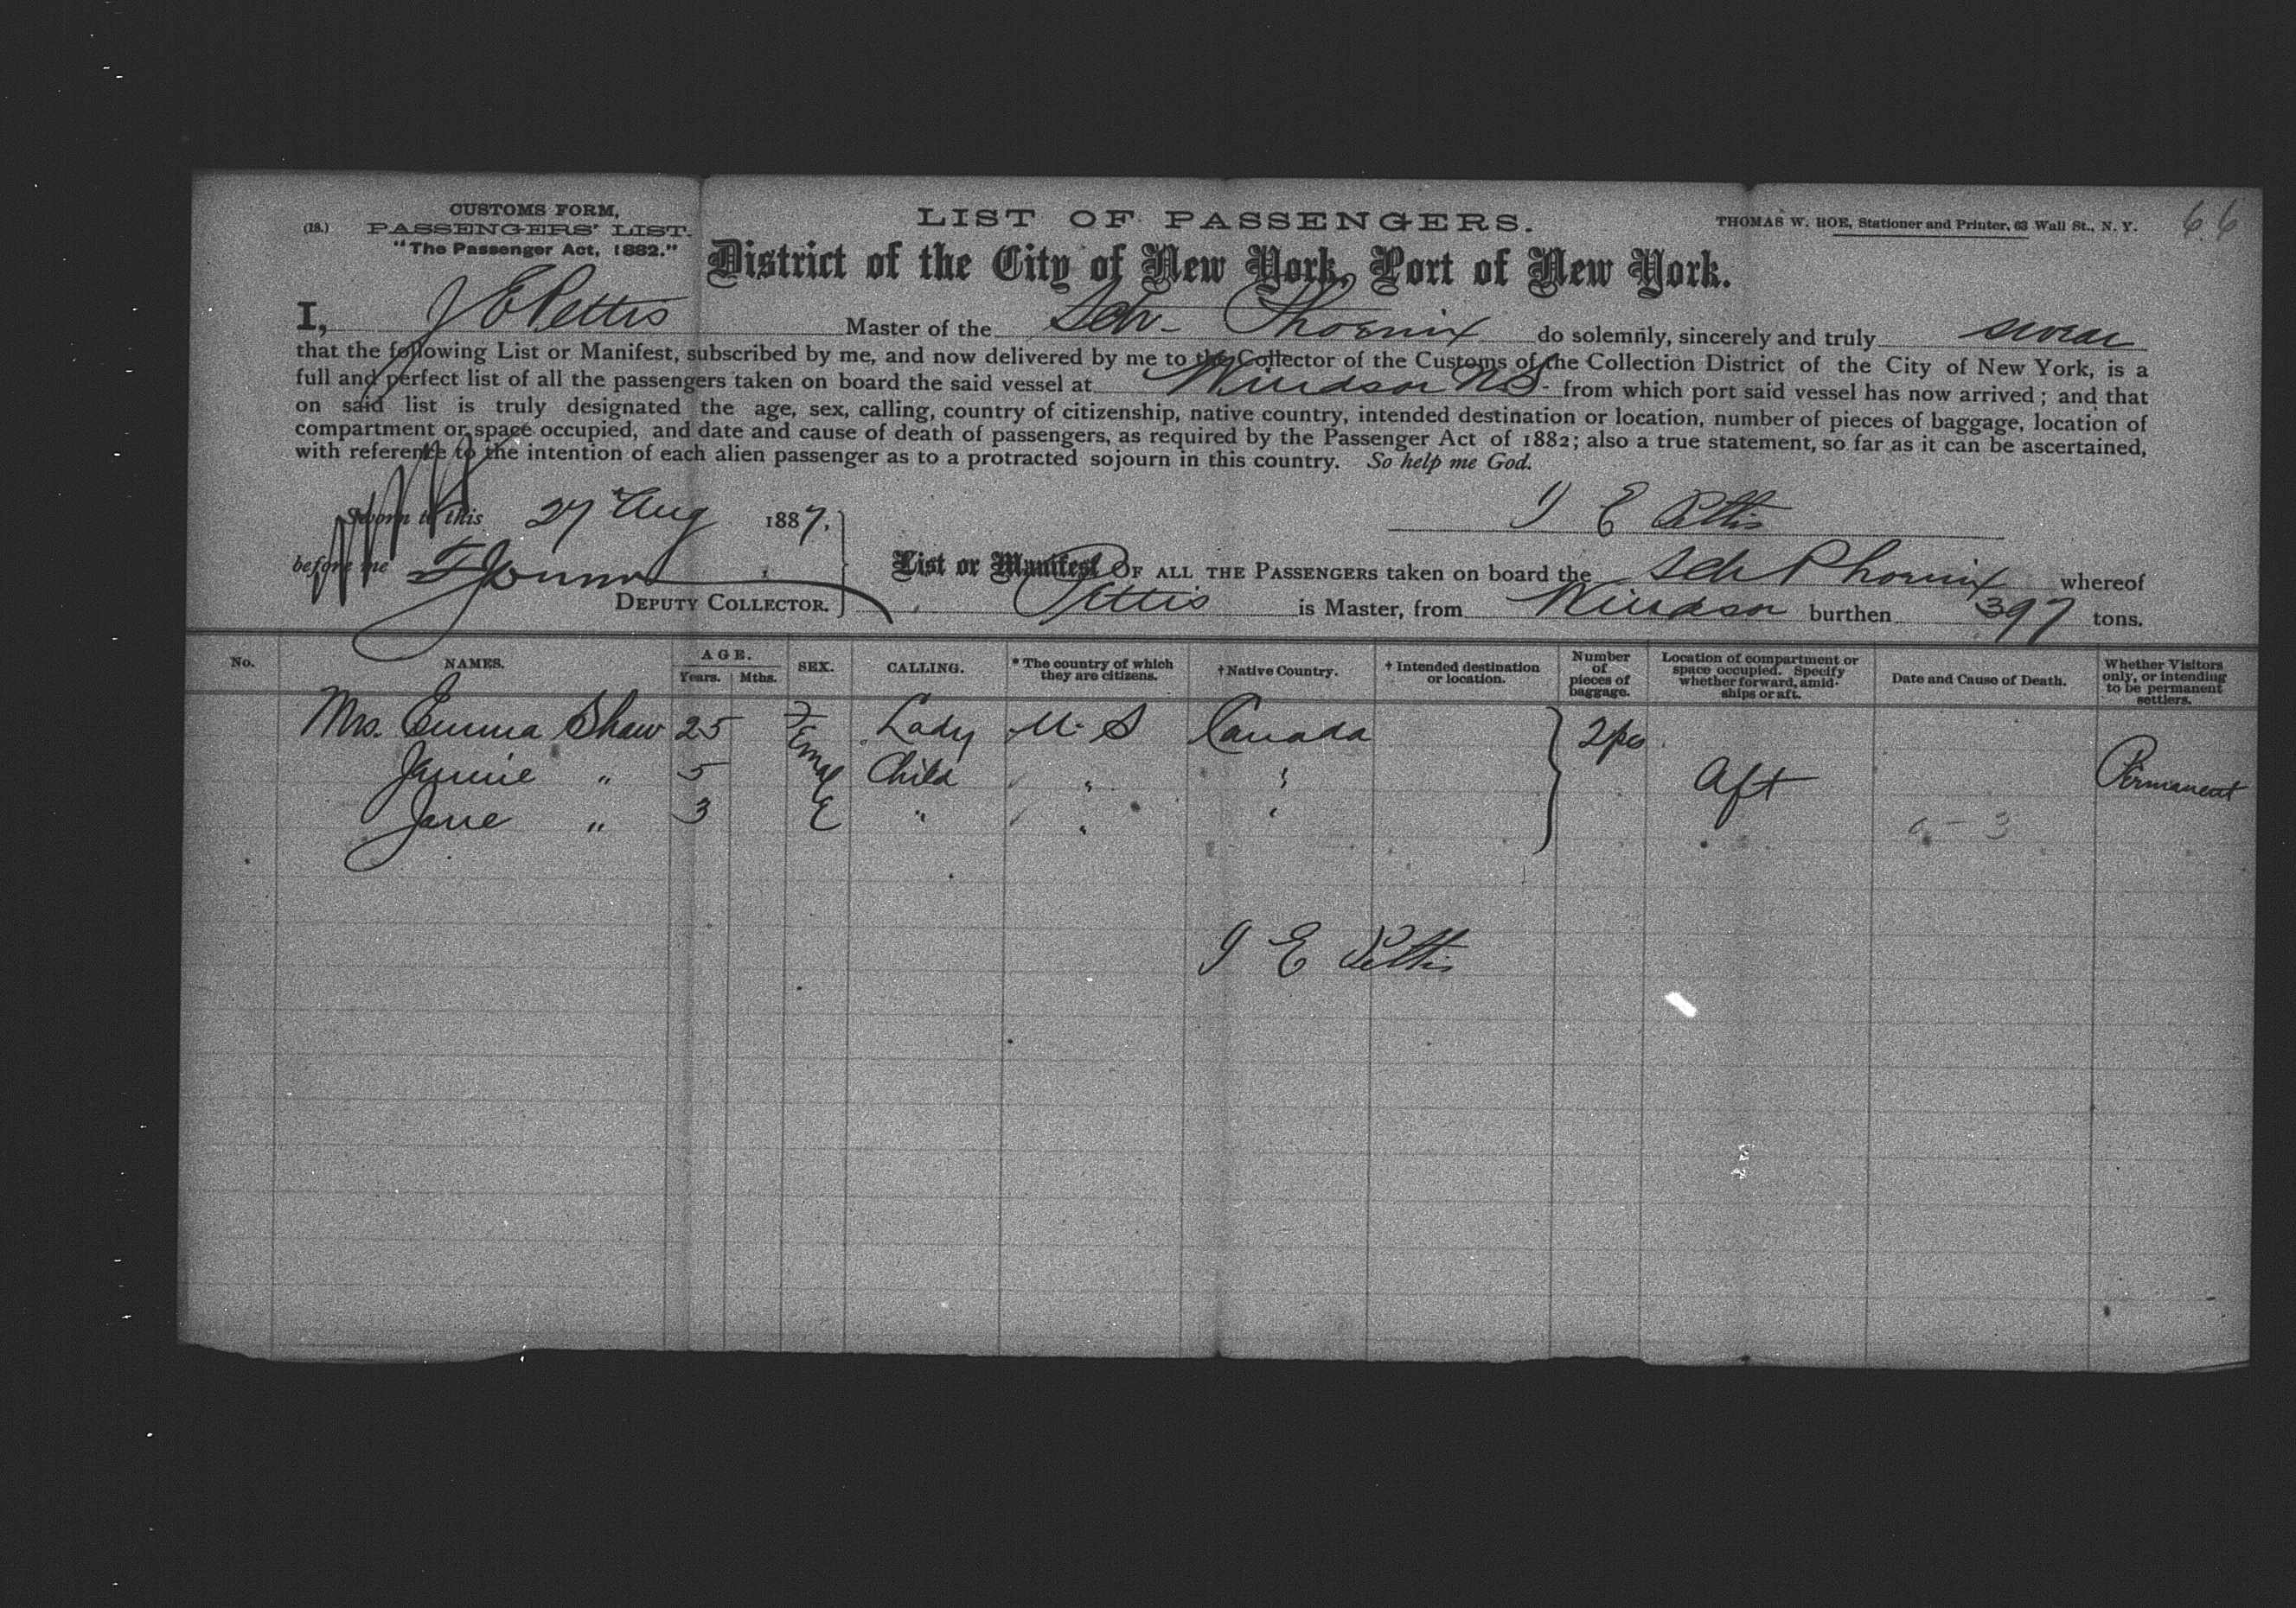 CUSTOMS FORM,
(18.) PASSENGERS' LIST.
"The Passenger Act, 1882."
LIST OF PASSENGERS.
THOMAS W. ROE, Stationer and Printer, 63 Wall St., N. Y.
66
District of the City of New York, Port of New York.
I, J E Pettis Master of the Schr Phoenix do solemnly, sincerely and truly swear
that the following List or Manifest, subscribed by me, and now delivered by me to the Collector of the Customs of the Collection District of the City of New York, is a
full and perfect list of all the passengers taken on board the said vessel at Windsor N.S. from which port said vessel has now arrived; and that
on said list is truly designated the age, sex, calling, country of citizenship, native country, intended destination or location, number of pieces of baggage, location of
compartment or space occupied, and date and cause of death of passengers, as required by the Passenger Act of 1882; also a true statement, so far as it can be ascertained,
with reference to the intention of each alien passenger as to a protracted sojourn in this country. So help me God.
Sworn to this 27 Aug 1887,
J E Pettis
before me
DEPUTY COLLECTOR.
List or Manifest OF ALL THE PASSENGERS taken on board the Sch Phoenix whereof
Pettis is Master, from Windsor burthen 397 tons.
No. NAMES. AGE. Years. Mths. SEX. CALLING. * The country of which they are citizens. † Native Country. † Intended destination or location. Number of pieces of baggage. Location of compartment or space occupied. Specify whether forward, amidships or aft. Date and Cause of Death. Whether Visitors only, or intending to be permanent settlers.
Mrs. Emma Shaw 25 Female Lady U. S Canada 2 pcs
Jannie " 5 Child " " Aft Permanent
Jane " 3 " " "
J E Pettis